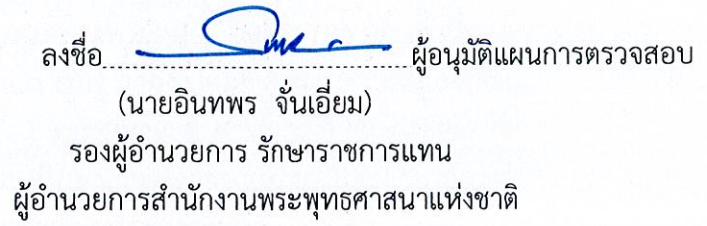 ลงชื่อ.......................................ผู้อนุมัติแผนการตรวจสอบ
(นายอินทพร จั่นเอี่ยม)
รองผู้อำนวยการ รักษาราชการแทน
ผู้อำนวยการสำนักงานพระพุทธศาสนาแห่งชาติ